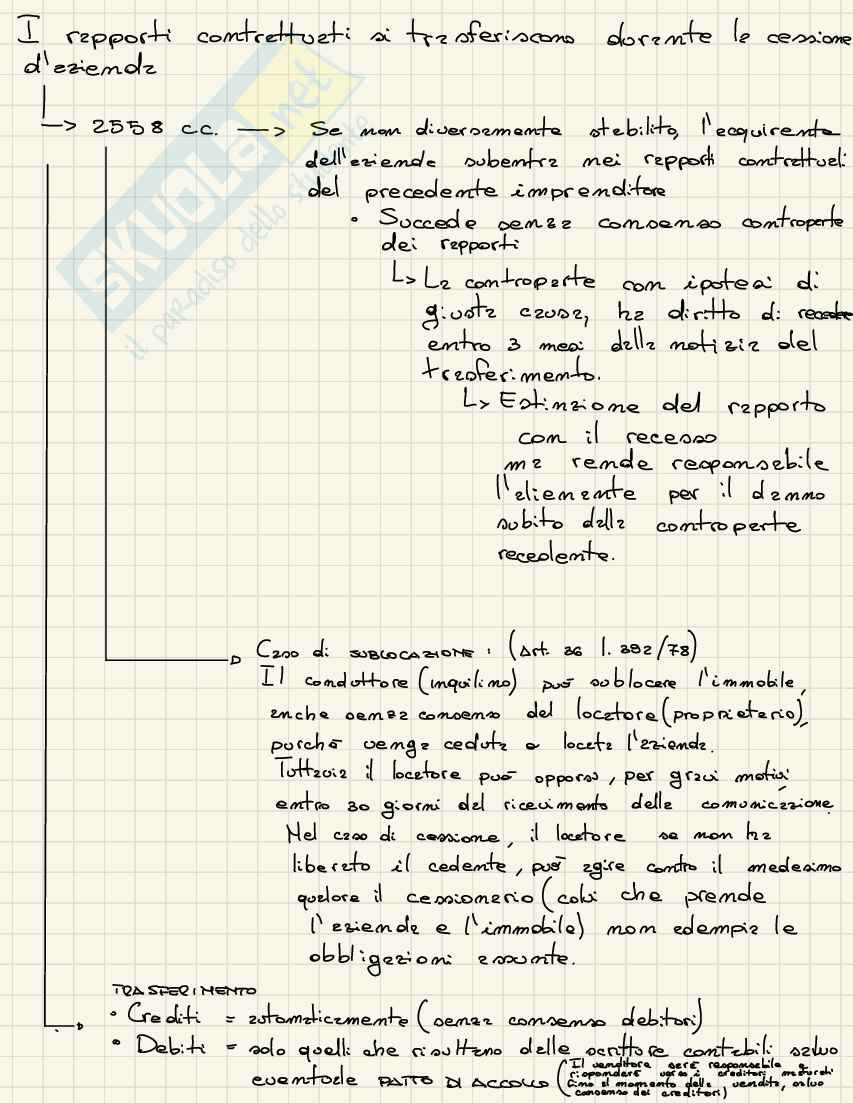 I rapporti contrattuali si trasferiscono durante la cessione
d'azienda
→ 2558 c.c. → Se non diversamente stabilito, l'acquirente
dell'azienda subentra nei rapporti contrattuali
del precedente imprenditore
• Succede senza consenso controparte
dei rapporti
↳ La controparte con ipotesi di
giusta causa, ha diritto di recedere
entro 3 mesi dalla notizia del
trasferimento.
↳ Estinzione del rapporto
con il recesso
ma rende responsabile
l'alienante per il danno
subito dalla controparte
recedente.
Caso di SUBLOCAZIONE: (Art. 36 l. 392/78)
Il conduttore (inquilino) può sublocare l'immobile,
anche senza consenso del locatore (proprietario),
purché venga ceduta o locata l'azienda.
Tuttavia il locatore può opporsi, per gravi motivi,
entro 30 giorni dal ricevimento della comunicazione.
Nel caso di cessione, il locatore se non ha
liberato il cedente, può agire contro il medesimo
qualora il cessionario (colui che prende
l'azienda e l'immobile) non adempia le
obbligazioni assunte.
TRASFERIMENTO
• Crediti = automaticamente (senza consenso debitori)
• Debiti = solo quelli che risultano dalle scritture contabili salvo
eventuale PATTO DI ACCOLLO (Il venditore sarà responsabile a
rispondere verso i creditori maturati
fino al momento della vendita, salvo
consenso dei creditori)
SKUOLA.net
il paradiso dello studente